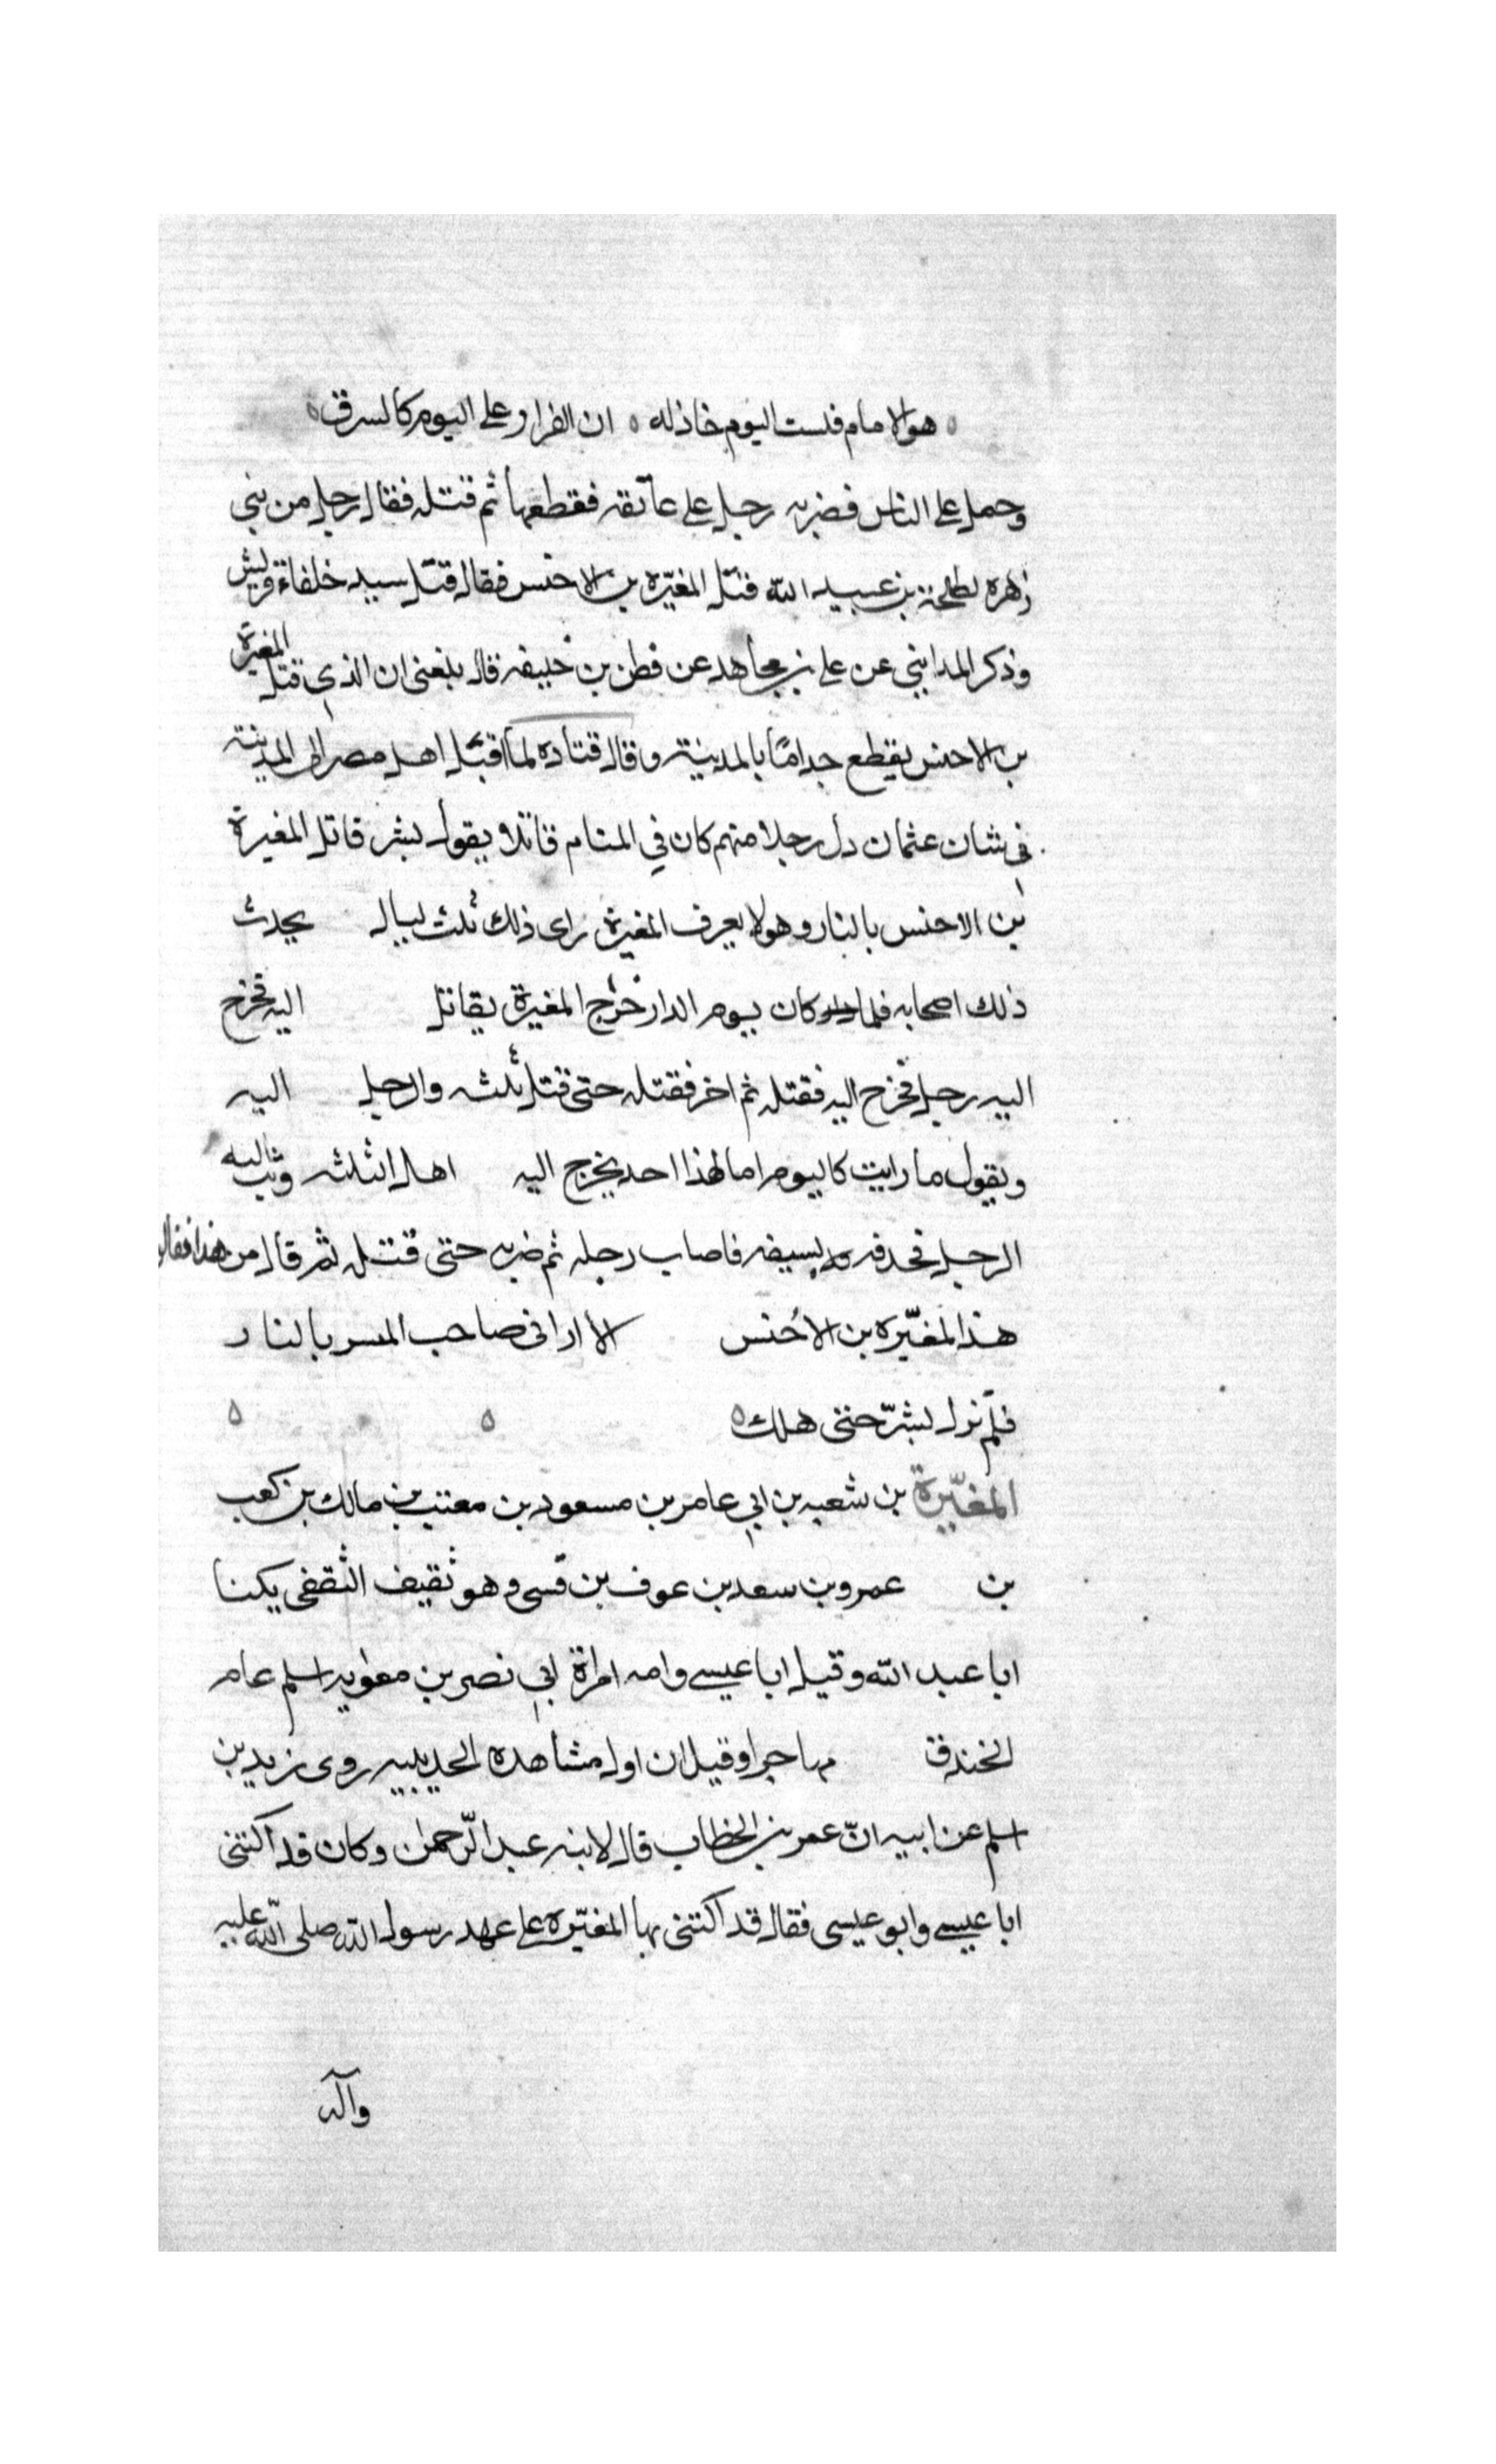 هو الامام فلست اليوم خاذله ه ان الفرار على اليوم كالسرق ه
وحمل على الناس فضربه رجل على عاتقه فقطعها ثم قتله فقال رجل من بني
زهره لطلحة بن عبيد الله قتل المغيّره بن الاخنس فقال قتل سيد خلفاء قريش
وذكر المدايني عن علي بن مجاهد عن فطن بن خليفه قال بلغني ان الذي قتل المغيرة
بن الاخنس يقطع جدامًا بالمدينة وقال قتاده لما اقبل اهل مصر الى المدينة
في شان عثمان دل رجلا منهم كان في المنام قائلا يقول بشر قاتل المغيرة
بن الاخنس بالنار وهو لا يعرف المغيرة راى ذلك ثلث ليال يحدث
ذلك اصحابه فلما كان يوم الدار خرج المغيرة يقاتل اليه فخرج
اليه رجل فخرج اليه فقتله ثم اخر فقتله حتى قتل ثلثه والرجل اليه
ويقول ما رايت كاليوم اما لهذا احد يخرج اليه اهل الثلثه وثب اليه
الرجل فحذفه بسيفه فاصاب رجله ثم ضربه حتى قتله ثم قال من هذا فقال
هذا المغيّره بن الاخنس الا اراني صاحب المبسر بالنار
فلم نزل بشرّ حتى هلك ه ه ه
المغيّرة بن شعبه بن ابي عامر بن مسعود بن معتب بن مالك بن كعب
بن عمرو بن سعد بن عوف بن قسي وهو ثقيف الثقفي يكنا
ابا عبد الله وقيل ابا عيسى وامه امراة ابي نصر بن معويه اسلم عام
الخندق مهاجرا وقيل ان اول مشاهده الحديبيه روى زيد بن
اسلم عن ابيه انّ عمر بن الخطاب قال لابنه عبد الرّحمن وكان قد اكتنى
ابا عيسى وابو عيسى فقال قد اكتنى بها المغيّره على عهد رسول الله صلى الله عليه
وآله